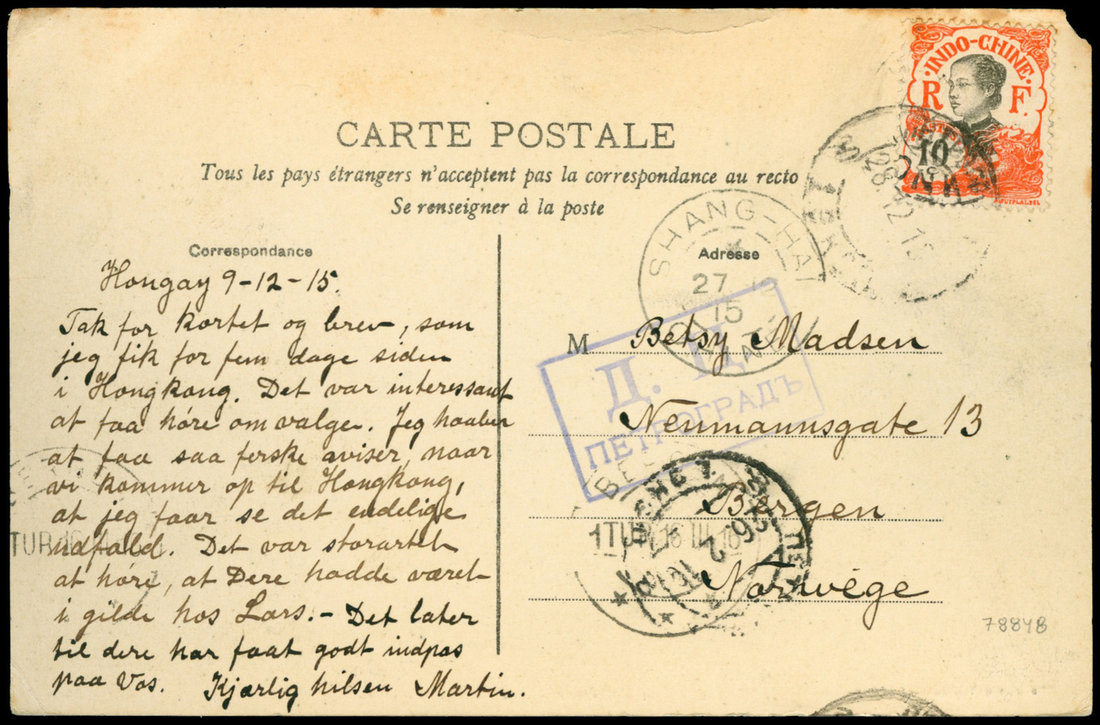 INDO-CHINE
R F
10
CARTE POSTALE
Tous les pays étrangers n'acceptent pas la correspondance au recto
Se renseigner à la poste
Correspondance
Hongay 9-12-15.
Tak for kortet og brev, som
jeg fik for fem dage siden
i Hongkong. Det var interessant
at faa høre om valge. Jeg haaber
at faa saa ferske aviser, naar
vi kommer op til Hongkong,
at jeg faar se det endelige
udfald. Det var storartet
at høre, at Dere hadde været
i gilde hos Lars. - Det later
til dere har faat godt indpas
paa Vos. Kjærlig hilsen Martin.
Adresse
SHANG-HAI
27
15
M Betsy Madsen
Neumannsgate 13
Bergen
Norwège
Д. Ц.
ПЕТРОГРАДЪ
26.2
78848